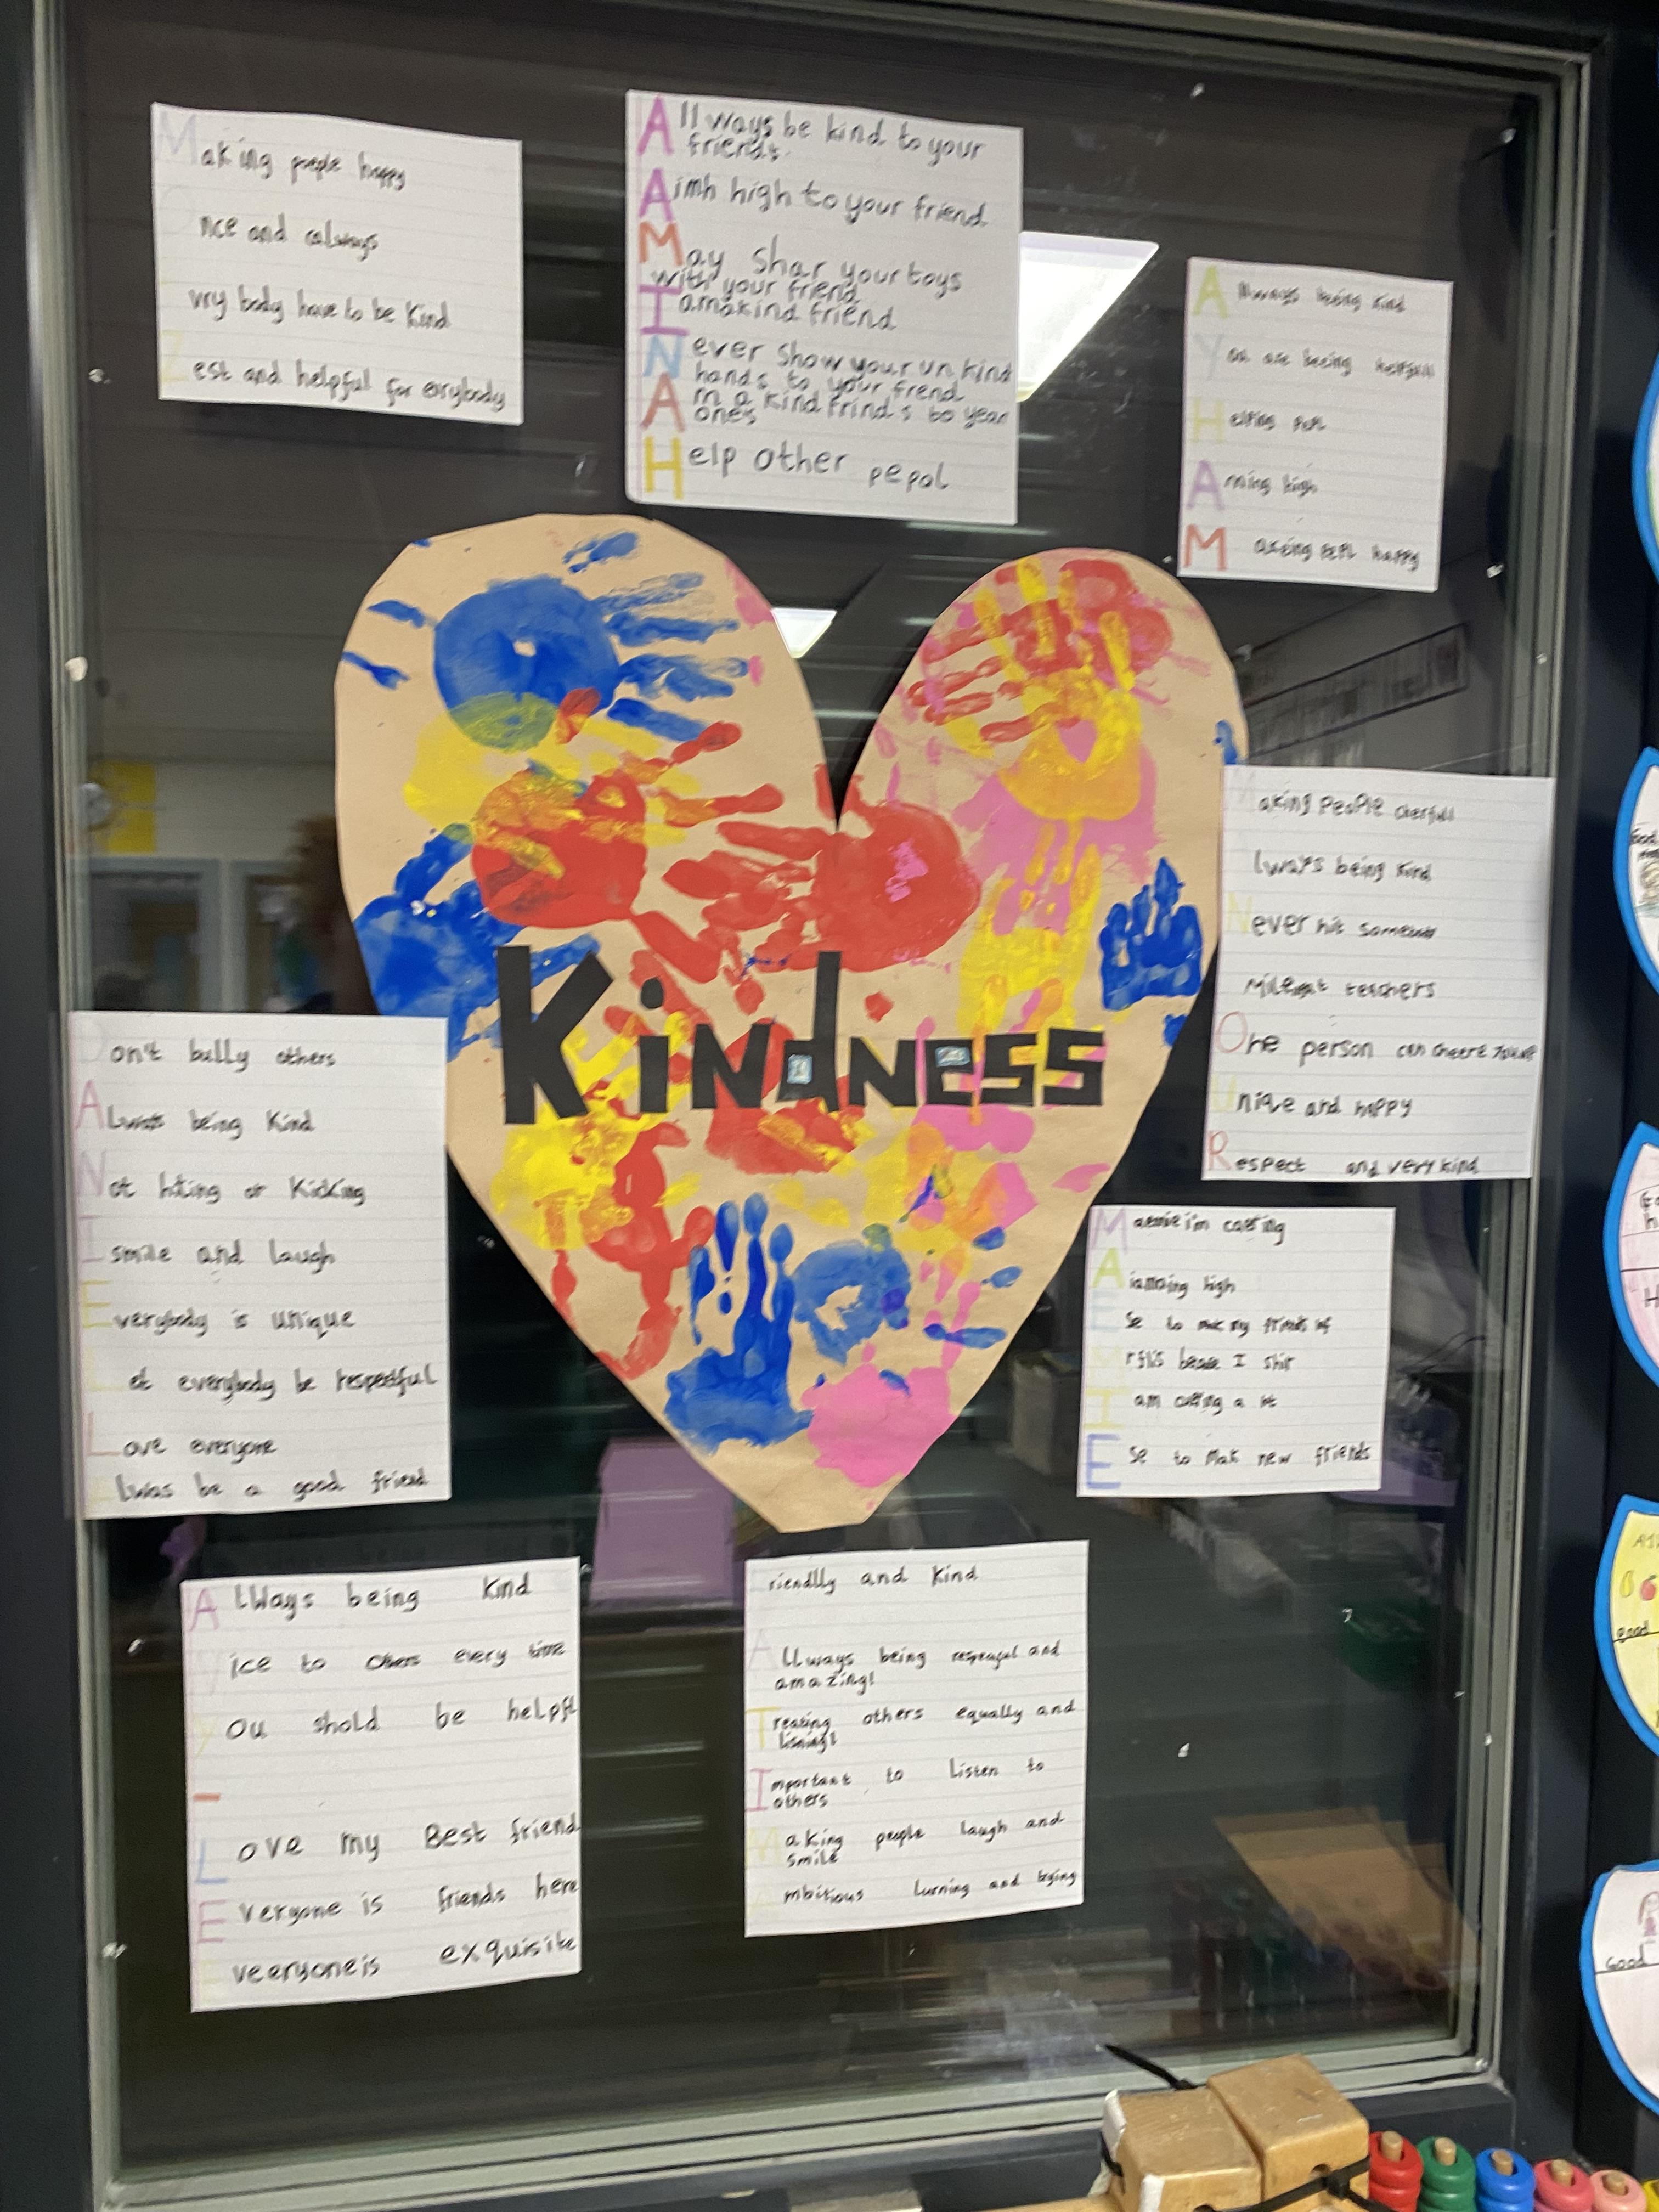 Making people happy
nce and always
vry body have to be kind
Zest and helpful for evrybody
Allways be kind to your
friends.
Aimh high to your friend
May shar your toys
with your friend
I amakind friend
Never show your un kind
hands to your frend
Am a kind frind s to year
ones
Help other pepol
Allways being kind
You are being
Helping
Aming high
Making happy
Kindness
Making people cherfull
lways being kind
Never hit
teachers
One person can
Uniqe and happy
Respect and very kind
Don't bully others
Always being kind
Not hiting or kicking
I smile and laugh
Everybody is unique
Let everybody be respectful
Love everyone
Alwas be a good friend
i'm
high
to my
I
I am a
Ese to mak new friends
Allways being kind
Nice to others every time
You shold be
-
Love my Best friend
Everyone is friends here
Eveeryone is exquisite
riendlly and kind
Allways being and
amazing!
Treating others equally and
Important to Listen to
others
Making people laugh and
smile
Ambitious lurning and
good
Good